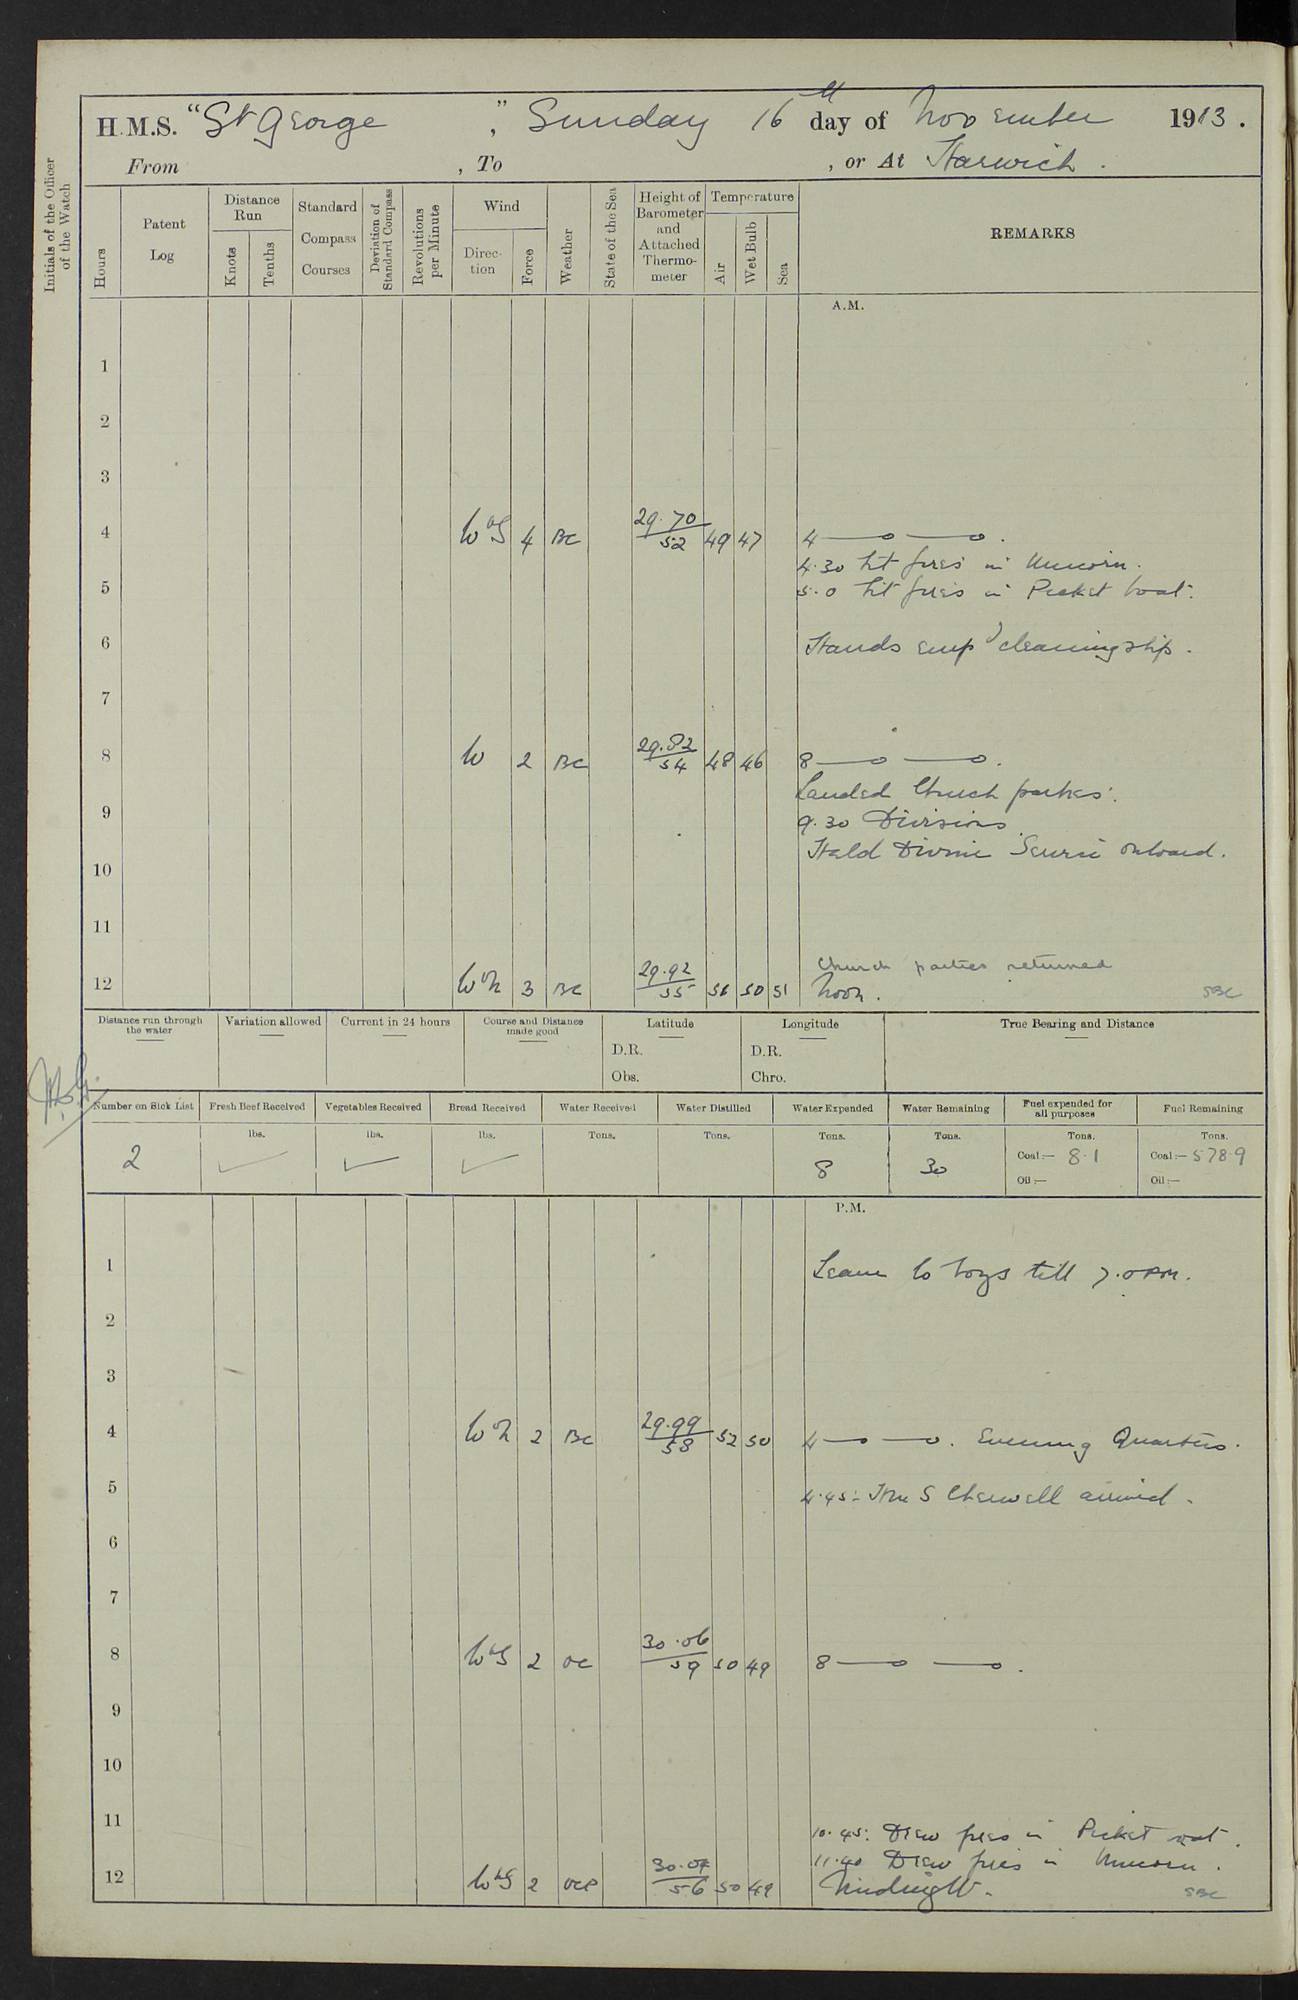 H.M.S. "St George", Sunday 16th day of November 1913.
From , To , or At Harwich.
Initials of the Officer of the Watch
Hours
Patent Log
Distance Run
Knots
Tenths
Standard Compass Courses
Deviation of Standard Compass
Revolutions per Minute
Wind
Direction
Force
Weather
State of the Sea
Height of Barometer and Attached Thermometer
Temperature
Air
Wet Bulb
Sea
REMARKS
A.M.
1
2
3
4 WbS 4 BC 29.70/52 49 47 4 —o —o.
4.30 Lit fires in Unicorn.
5 5.0 Lit fires in Picket boat.
6 Hands emp'd cleaning ship.
7
8 W 2 BC 29.82/54 48 46 8 —o —o.
Landed Church parties.
9 9.30 Divisions.
Held Divine Service onboard.
10
11
Church parties returned
12 WbN 3 BC 29.92/55 51 50 51 Noon. SBC
Distance run through the water
Variation allowed
Current in 24 hours
Course and Distance made good
Latitude
D.R.
Obs.
Longitude
D.R.
Chro.
True Bearing and Distance
Number on Sick List Fresh Beef Received Vegetables Received Bread Received Water Received Water Distilled Water Expended Water Remaining Fuel expended for all purposes Fuel Remaining
lbs. lbs. lbs. Tons. Tons. Tons. Tons. Tons. Tons.
2 ✓ ✓ ✓ 8 30 Coal:— 8.1 Coal:— 578.9
Oil:— Oil:—
P.M.
1 Leave to boys till 7.0 PM.
2
3
4 WbN 2 BC 29.99/58 52 50 4 —o —o. Evening Quarters.
5 4.45: HMS Cherwell arrived.
6
7
8 WbS 2 OC 30.06/59 50 49 8 —o —o.
9
10
11 10.45: Drew fires in Picket boat.
11.40 Drew fires in Unicorn.
12 WbS 2 OCP 30.07/56 50 49 Midnight. SBC